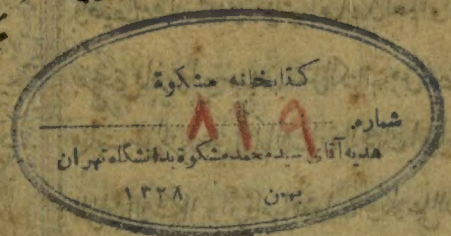 کتابخانه مشکوة
شماره ۸۱۹
هدیه آقای سید محمد مشکوة بدانشگاه تهران
بهمن ۱۳۲۸